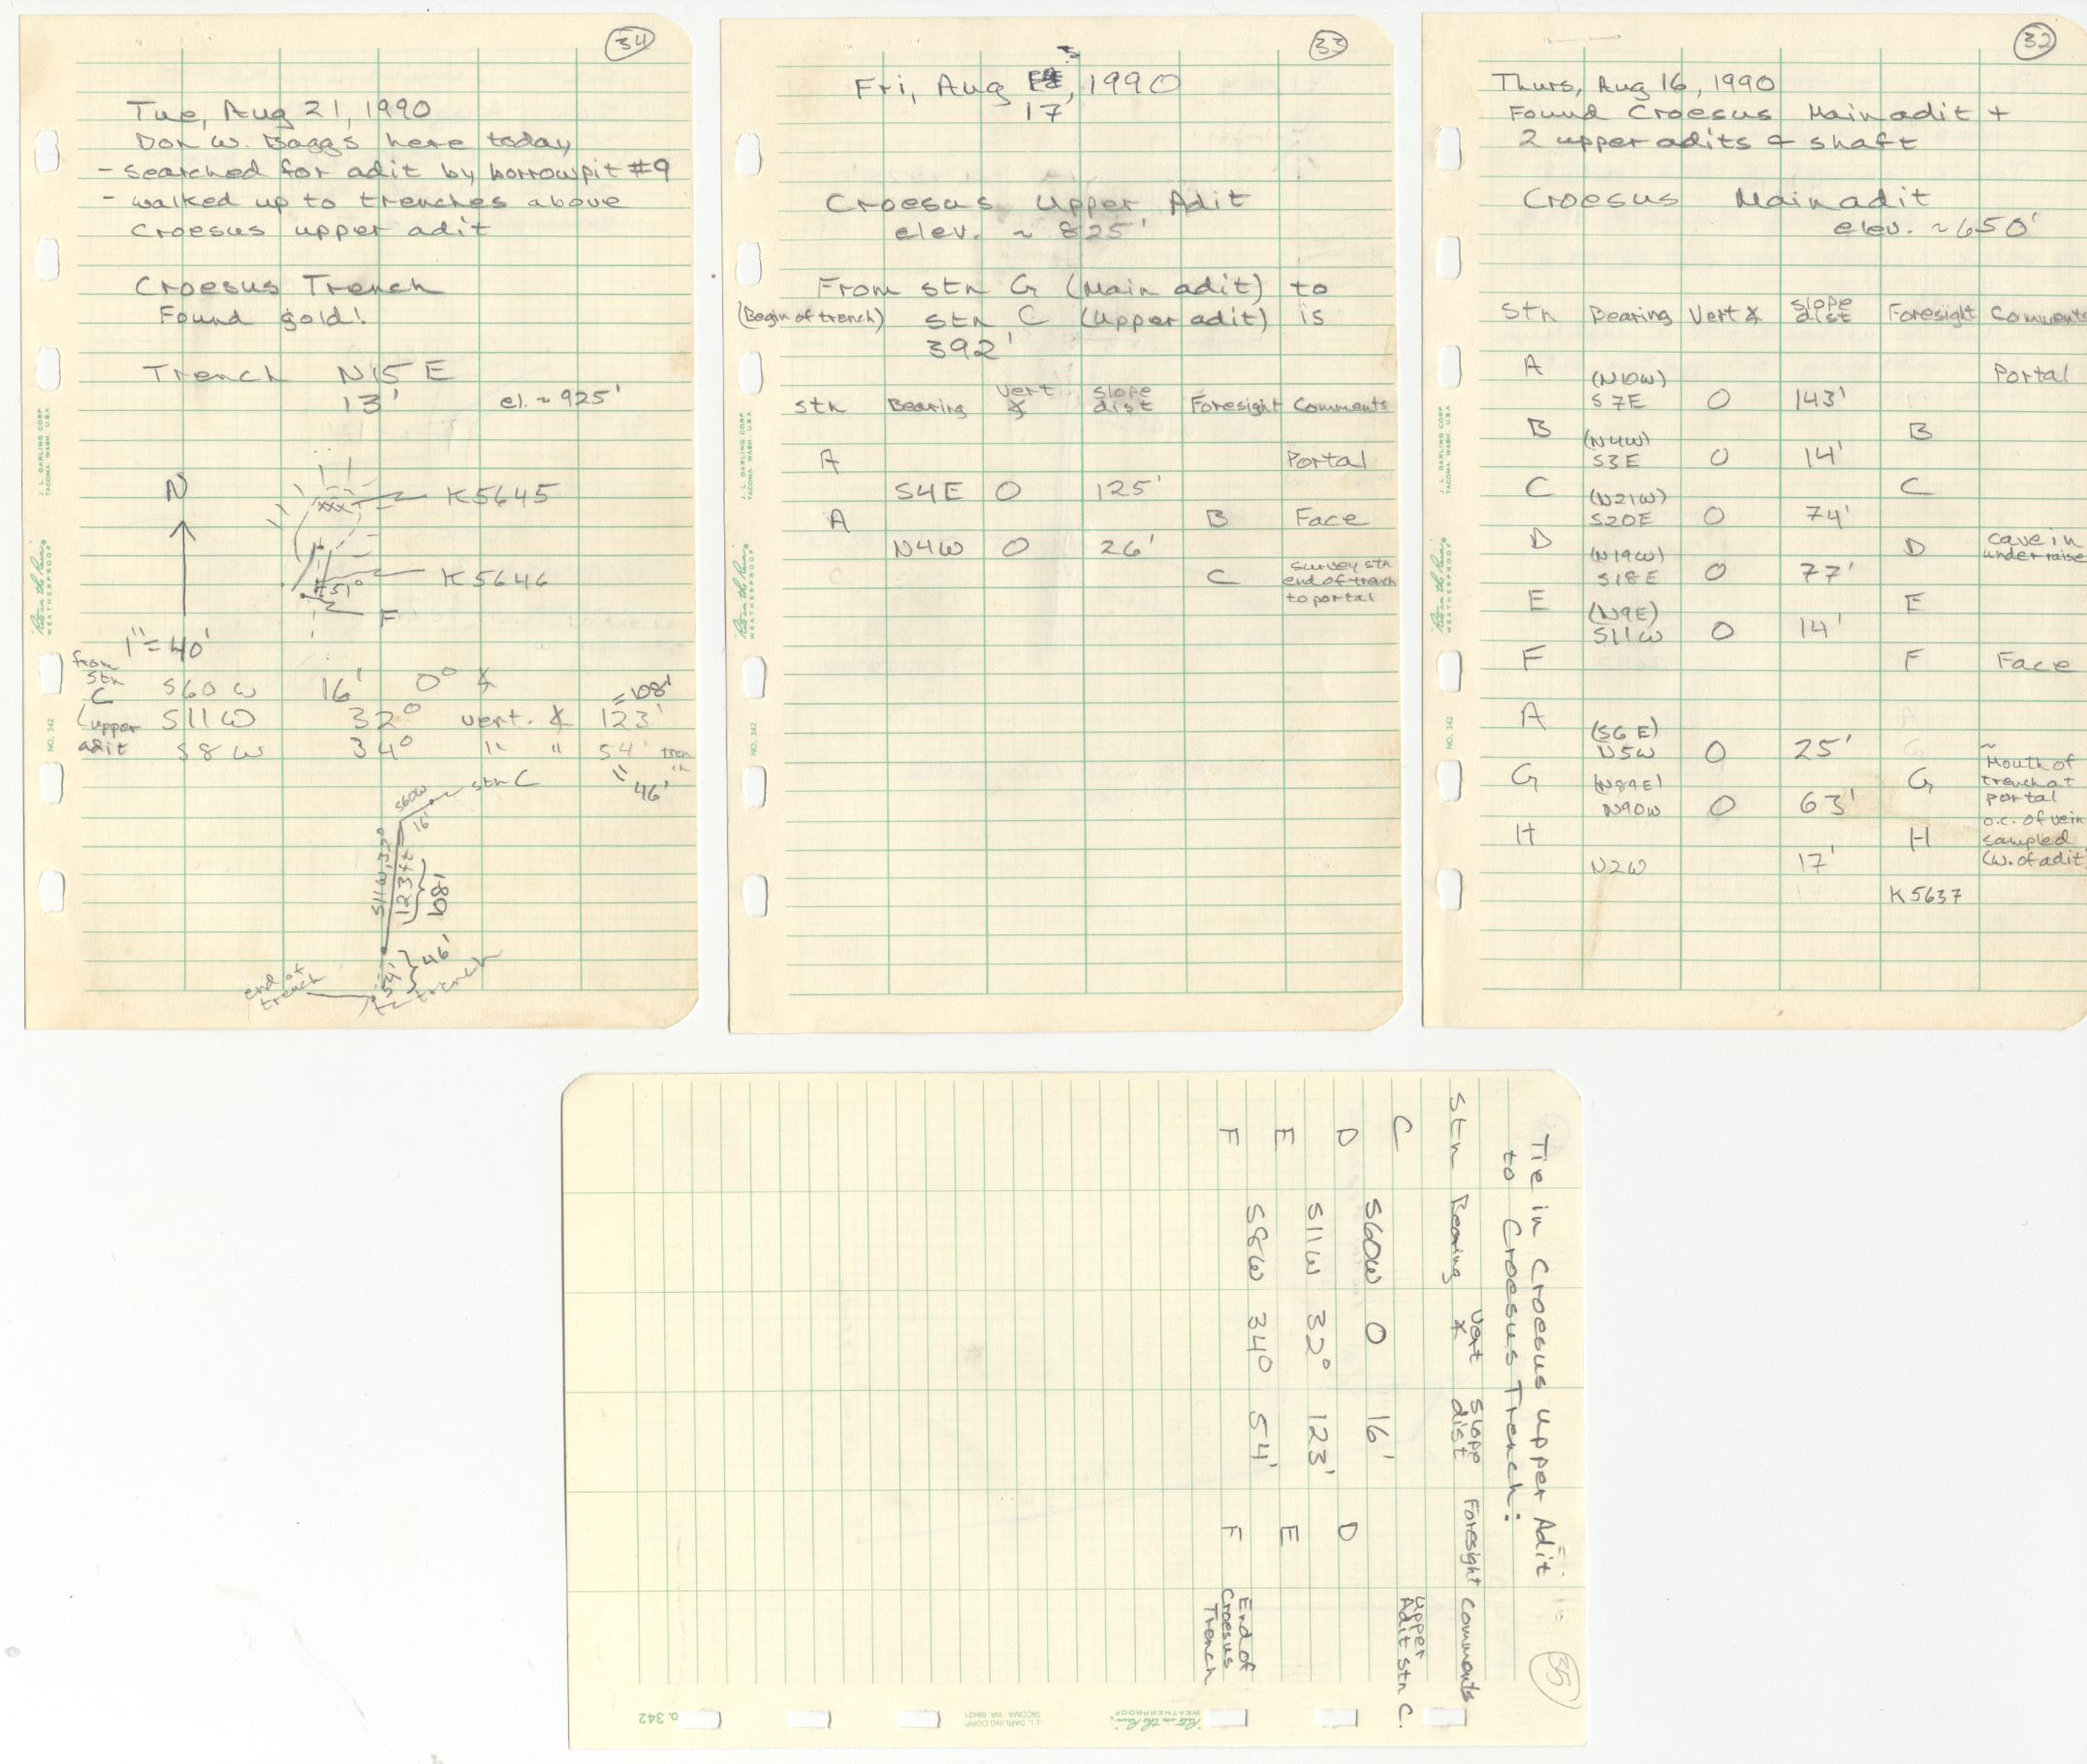 34
Tue, Aug 21, 1990
Don W. Baggs here today
- searched for adit by borrowpit #9
- walked up to trenches above
Croesus upper adit
Croesus Trench
Found gold!
Trench N15E
13' el. ~ 925'
N
K5645
xxx
51°
K5646
F
1" = 40'
from stn C (upper adit
S60W 16' 0° ∡
= 108'
S11W 32° vert. ∡ 123'
S8W 34° " " 54' tren
"
46'
stn C
S60W
16'
S11W, 32°
123ft
108'
54'
46'
trench
end of trench
J. L. DARLING CORP.
TACOMA, WASH. U.S.A.
Rite in the Rain
WEATHERPROOF
NO. 342
33
Fri, Aug 17, 1990
Croesus Upper Adit
elev. ~ 825'
From stn G (Main adit) to
(Begin of trench) stn C (Upper adit) is
392'
stn Bearing vert ∡ slope dist Foresight Comments
A Portal
S4E 0 125'
A B Face
N4W 0 26'
C survey stn
end of trench
to portal
J. L. DARLING CORP.
TACOMA, WASH. U.S.A.
Rite in the Rain
WEATHERPROOF
NO. 342
32
Thurs, Aug 16, 1990
Found Croesus Main adit +
2 upper adits & shaft
Croesus Main adit
elev. ~ 650'
Stn Bearing Vert ∡ slope dist Foresight Comments
A Portal
(N10W)
S7E 0 143'
B B
(N4W)
S3E 0 14'
C C
(N21W)
S20E 0 74'
D D cave in
under raise
(N19W)
S18E 0 77'
E E
(N9E)
S11W 0 14'
F F Face
A
(S6E)
N5W 0 25'
G G ~ Mouth of
trench at
portal
(N89E)
N90W 0 63'
H H o.c. of vein
sampled
(W. of adit)
N2W 17'
K5637
J. L. DARLING CORP.
TACOMA, WASH. U.S.A.
Rite in the Rain
WEATHERPROOF
NO. 342
35
Tie in Croesus upper Adit
to Croesus Trench:
Stn Bearing Vert ∡ Slope dist Foresight Comments
C Upper
Adit stn C.
S60W 0 16'
D D
S11W 32° 123'
E E
S8W 34° 54'
F F End of
Croesus
Trench
Rite in the Rain
WEATHERPROOF
J. L. DARLING CORP.
TACOMA, WA 98421
o. 342